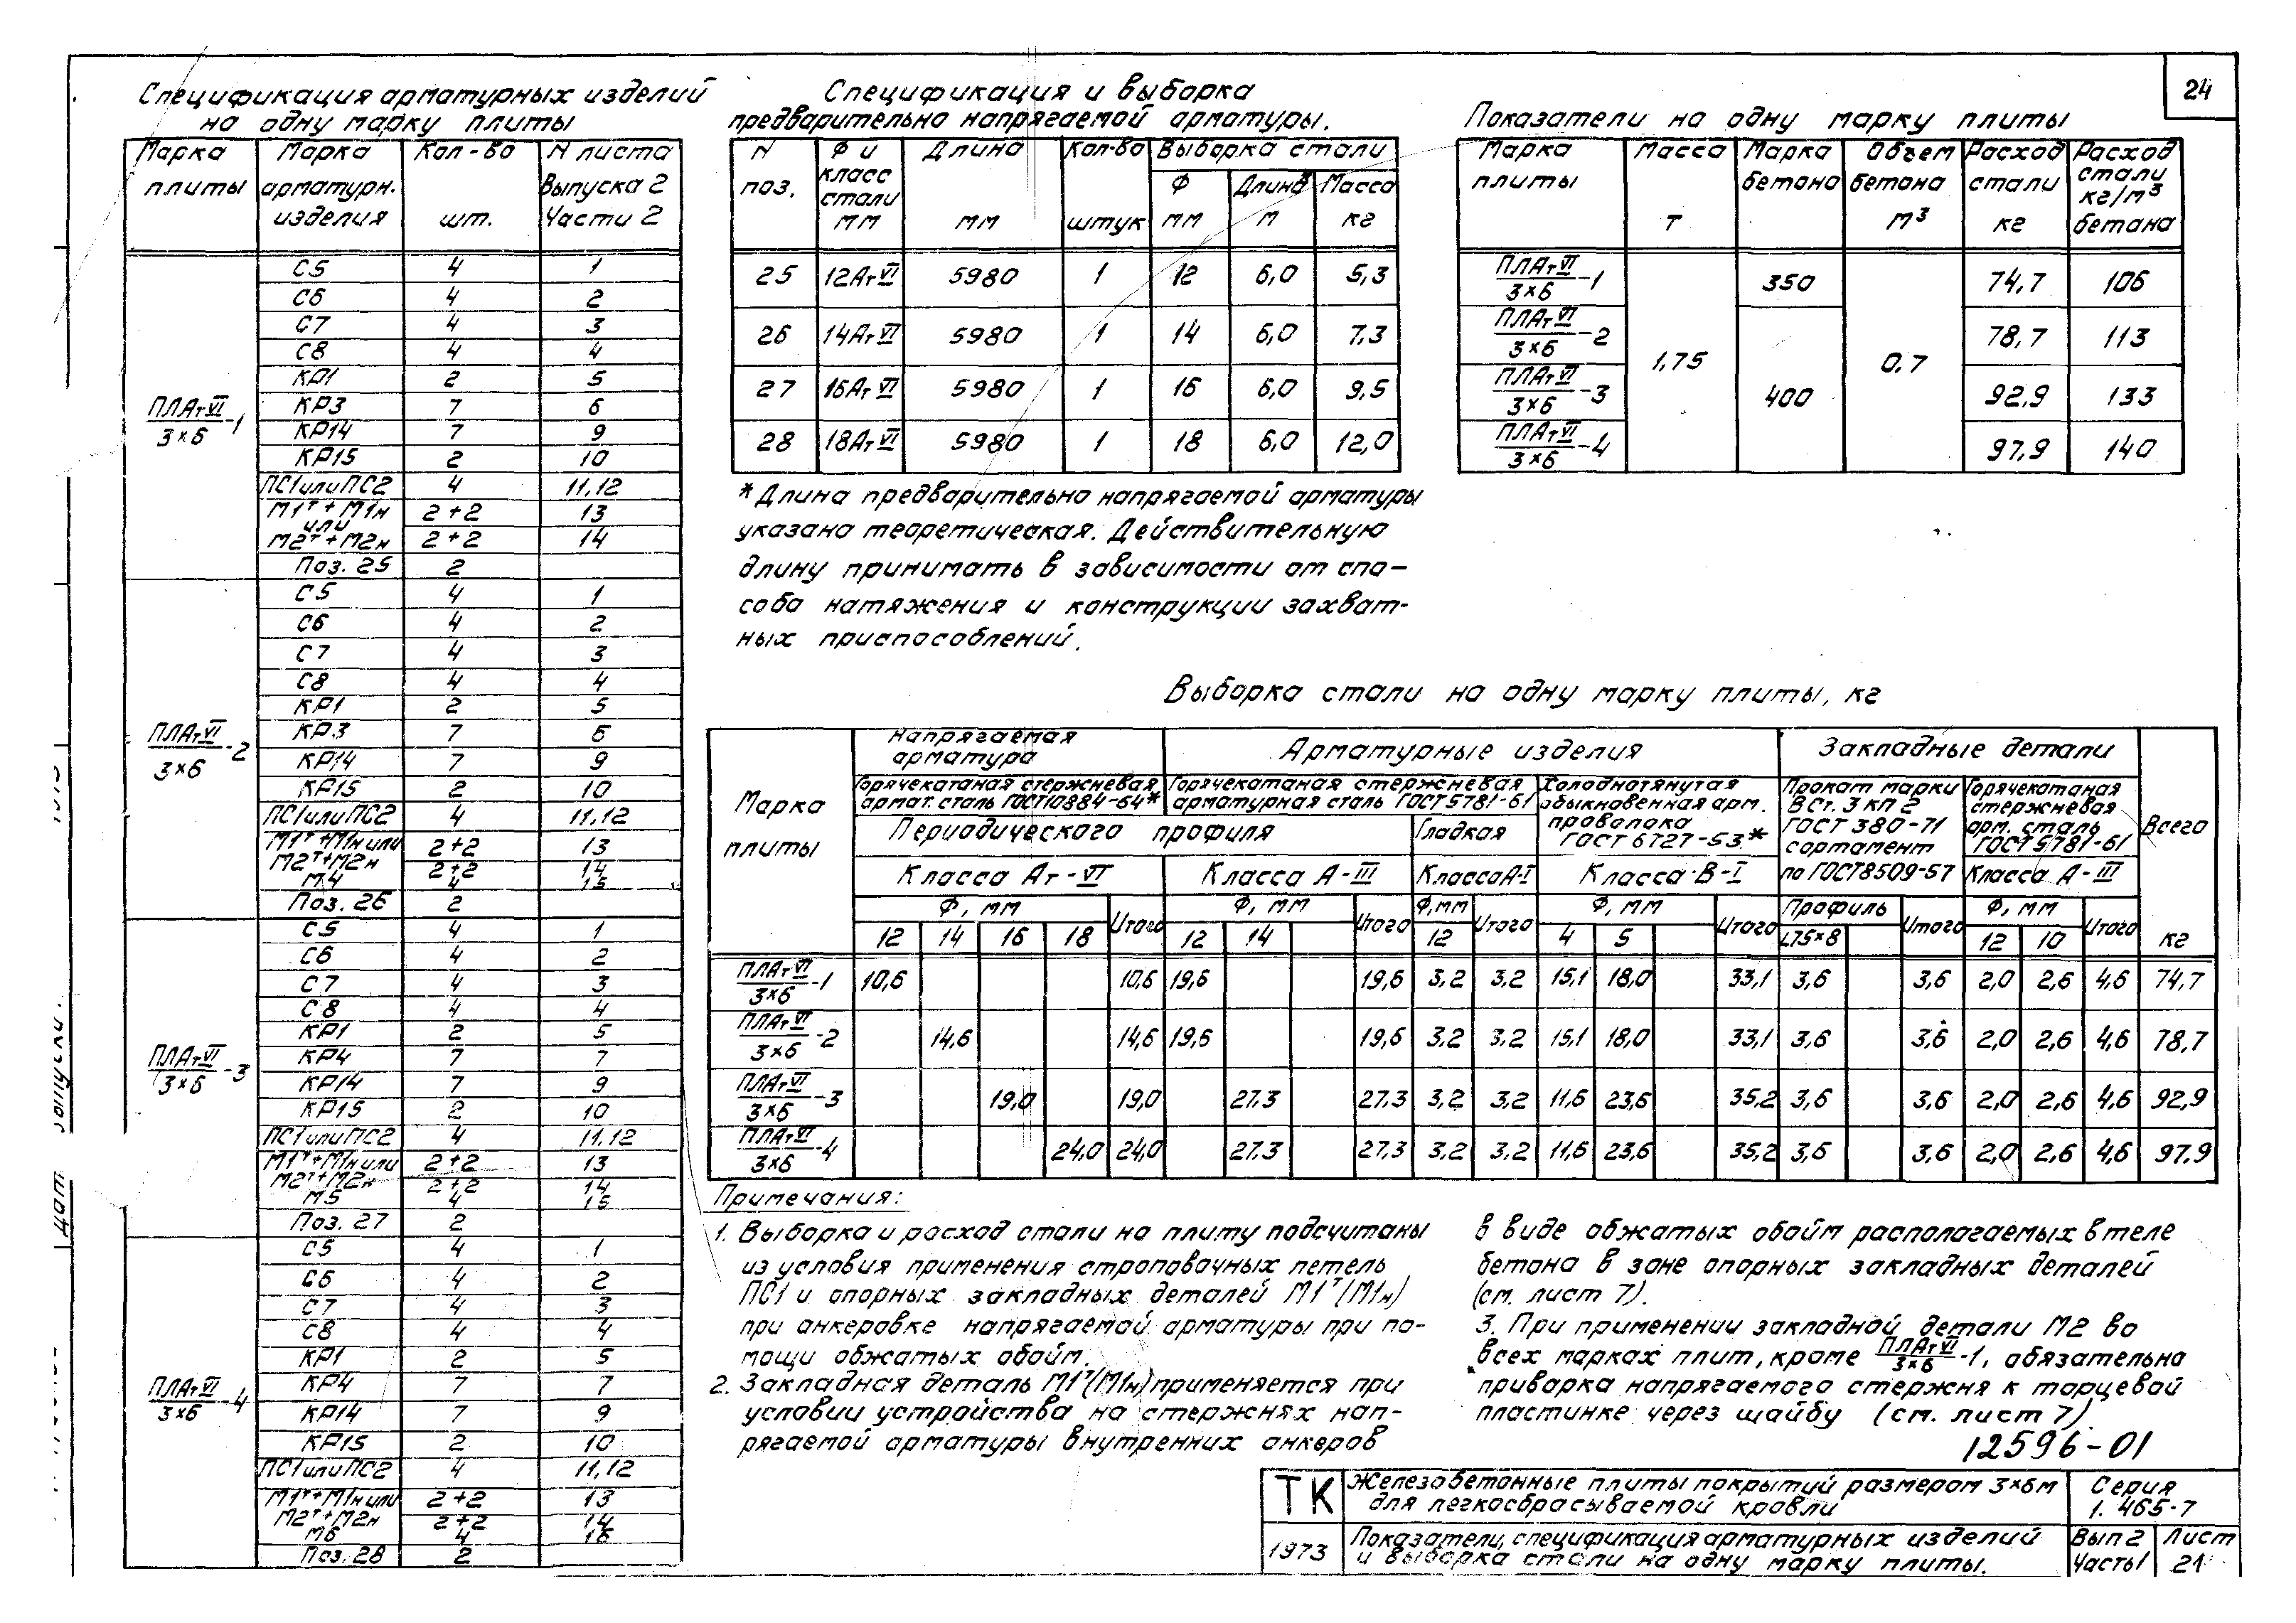 24
Спецификация арматурных изделий
на одну марку плиты
Марка плиты | Марка арматурн. изделия | Кол-во шт. | N листа Выпуска 2 Части 2
ПЛАтVI/3×6-1 | С5 | 4 | 1
С6 | 4 | 2
С7 | 4 | 3
С8 | 4 | 4
КР1 | 2 | 5
КР3 | 7 | 6
КР14 | 7 | 9
КР15 | 2 | 10
ПС1 или ПС2 | 4 | 11,12
М1т + М1н или | 2+2 | 13
М2т + М2н | 2+2 | 14
Поз. 25 | 2
ПЛАтVI/3×6-2 | С5 | 4 | 1
С6 | 4 | 2
С7 | 4 | 3
С8 | 4 | 4
КР1 | 2 | 5
КР3 | 7 | 6
КР14 | 7 | 9
КР15 | 2 | 10
ПС1 или ПС2 | 4 | 11,12
М1т+М1н или | 2+2 | 13
М2т+М2н | 2+2 | 14
М4 | 4 | 15
Поз. 26 | 2
ПЛАтVI/3×6-3 | С5 | 4 | 1
С6 | 4 | 2
С7 | 4 | 3
С8 | 4 | 4
КР1 | 2 | 5
КР4 | 7 | 7
КР14 | 7 | 9
КР15 | 2 | 10
ПС1 или ПС2 | 4 | 11,12
М1т+М1н или | 2+2 | 13
М2т+М2н | 2+2 | 14
М5 | 4 | 15
Поз. 27 | 2
ПЛАтVI/3×6-4 | С5 | 4 | 1
С6 | 4 | 2
С7 | 4 | 3
С8 | 4 | 4
КР1 | 2 | 5
КР4 | 7 | 7
КР14 | 7 | 9
КР15 | 2 | 10
ПС1 или ПС2 | 4 | 11,12
М1т+М1н или | 2+2 | 13
М2т+М2н | 2+2 | 14
М6 | 4 | 16
Поз. 28 | 2
Спецификация и выборка
предварительно напрягаемой арматуры.
N поз. | Ф и класс стали мм | Длина мм | Кол-во штук | Выборка стали
Ф мм | Длина* м | Масса кг
25 | 12АтVI | 5980 | 1 | 12 | 6,0 | 5,3
26 | 14АтVI | 5980 | 1 | 14 | 6,0 | 7,3
27 | 16АтVI | 5980 | 1 | 16 | 6,0 | 9,5
28 | 18АтVI | 5980 | 1 | 18 | 6,0 | 12,0
* Длина предварительно напрягаемой арматуры
указана теоретическая. Действительную
длину принимать в зависимости от спо-
соба натяжения и конструкции захват-
ных приспособлений.
Показатели на одну марку плиты
Марка плиты | Масса Т | Марка бетона | Объем бетона м³ | Расход стали кг | Расход стали кг/м³ бетона
ПЛАтVI/3×6-1 | 1,75 | 350 | 0,7 | 74,7 | 106
ПЛАтVI/3×6-2 | 400 | 78,7 | 113
ПЛАтVI/3×6-3 | 92,9 | 133
ПЛАтVI/3×6-4 | 97,9 | 140
Выборка стали на одну марку плиты, кг
Марка плиты | Напрягаемая арматура | Арматурные изделия | Закладные детали | Всего кг
Горячекатаная стержневая армат. сталь ГОСТ10884-64* | Горячекатаная стержневая арматурная сталь ГОСТ5781-61 | Холоднотянутая обыкновенная арм. проволока ГОСТ 6727-53* | Прокат марки В Ст. 3 кп 2 ГОСТ 380-71 сортамент по ГОСТ8509-57 | Горячекатаная стержневая арм. сталь ГОСТ5781-61
Периодического профиля | Гладкая
Класса Ат-VI | Класса А-III | Класса А-I | Класса В-I | Класса А-III
Ф, мм | Итого | Ф, мм | Итого | Ф,мм | Итого | Ф, мм | Итого | Профиль | Итого | Ф, мм | Итого
12 | 14 | 16 | 18 | 12 | 14 | 12 | 4 | 5 | L75×8 | 12 | 10
ПЛАтVI/3×6-1 | 10,6 | 10,6 | 19,6 | 19,6 | 3,2 | 3,2 | 15,1 | 18,0 | 33,1 | 3,6 | 3,6 | 2,0 | 2,6 | 4,6 | 74,7
ПЛАтVI/3×6-2 | 14,6 | 14,6 | 19,6 | 19,6 | 3,2 | 3,2 | 15,1 | 18,0 | 33,1 | 3,6 | 3,6 | 2,0 | 2,6 | 4,6 | 78,7
ПЛАтVI/3×6-3 | 19,0 | 19,0 | 27,3 | 27,3 | 3,2 | 3,2 | 11,6 | 23,6 | 35,2 | 3,6 | 3,6 | 2,0 | 2,6 | 4,6 | 92,9
ПЛАтVI/3×6-4 | 24,0 | 24,0 | 27,3 | 27,3 | 3,2 | 3,2 | 11,6 | 23,6 | 35,2 | 3,6 | 3,6 | 2,0 | 2,6 | 4,6 | 97,9
Примечания:
1. Выборка и расход стали на плиту подсчитаны
из условия применения строповочных петель
ПС1 и опорных закладных деталей М1т(М1н)
при анкеровке напрягаемой арматуры при по-
мощи обжатых обойм.
2. Закладная деталь М1т(М1н) применяется при
условии устройства на стержнях нап-
рягаемой арматуры внутренних анкеров
в виде обжатых обойм располагаемых в теле
бетона в зоне опорных закладных деталей
(см. лист 7).
3. При применении закладной детали М2 во
всех марках плит, кроме ПЛАтVI/3×6-1, обязательна
приварка напрягаемого стержня к торцевой
пластинке через шайбу (см. лист 7).
12596-01
ТК | Железобетонные плиты покрытий размером 3×6м
для легкосбрасываемой кровли | Серия 1.465-7
1973 | Показатели, спецификация арматурных изделий
и выборка стали на одну марку плиты. | Вып 2 Часть 1 | Лист 21